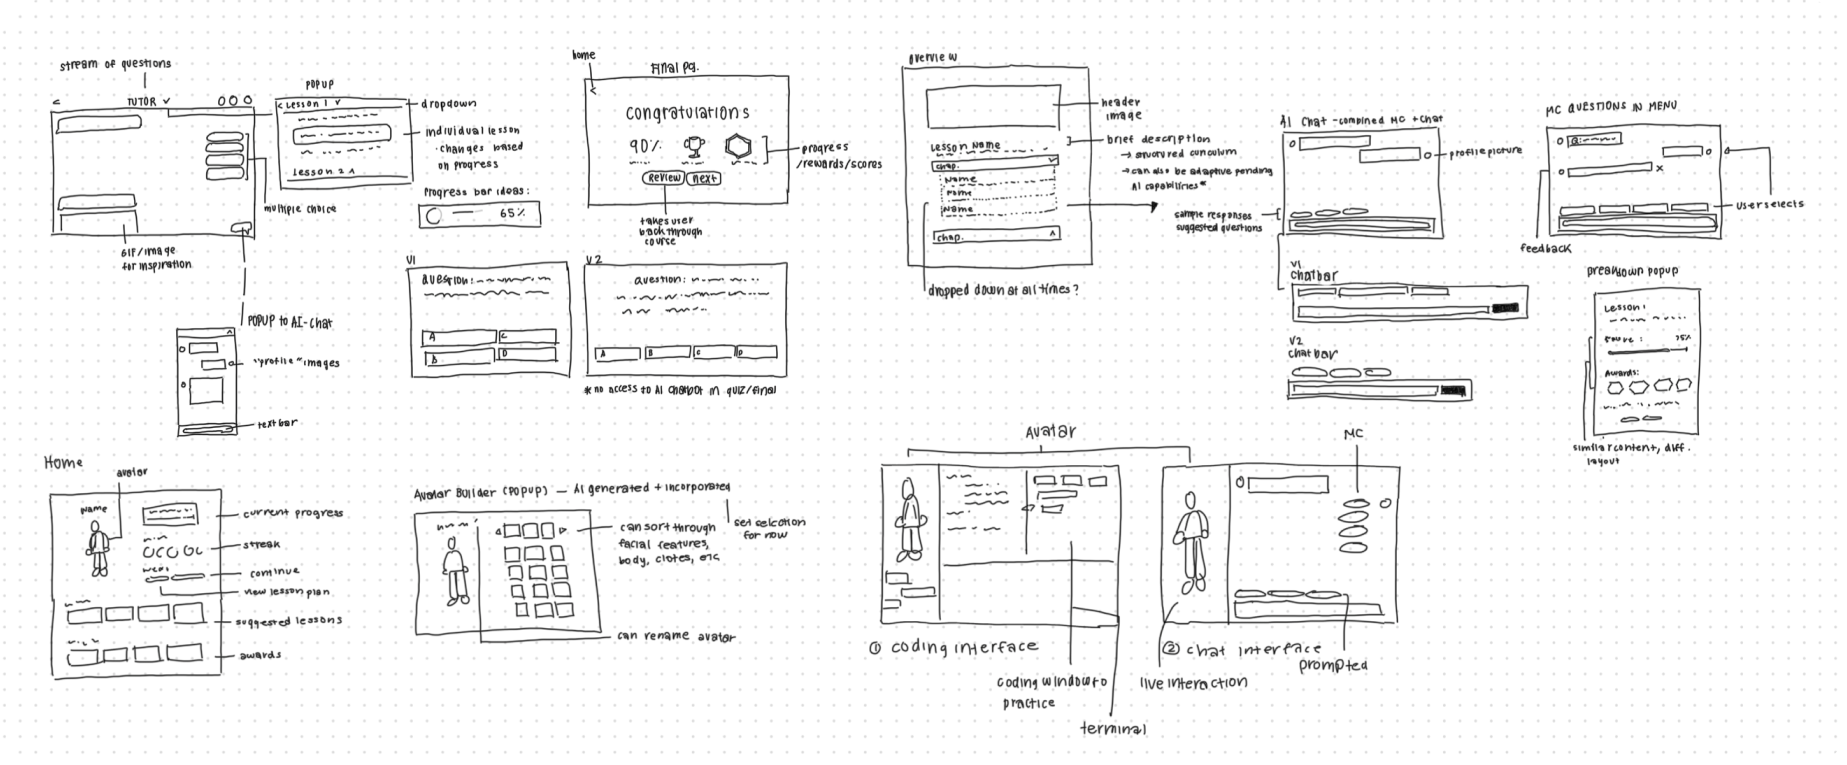 stream of questions
<
TUTOR
POPUP
< Lesson 1
Lesson 2
dropdown
individual lesson
· changes based
on progress
multiple choice
GIF/image
for inspiration
Progress bar ideas:
65%
POPUP to AI-chat
"profile" images
text bar
home
Final pg.
<
congratulations
90%
Review
next
progress
/rewards/scores
takes user
back through
course
V1
Question:
A
C
B
D
V2
Question:
A
B
C
D
* no access to AI chatbot in quiz/final
overview
header
image
Lesson Name
brief description
→ structured curriculum
→ can also be adaptive pending
AI capabilities*
chap.
Name
Name
Name
chap.
dropped down at all times?
AI Chat - combined MC + chat
profile picture
sample responses
suggested questions
V1
chatbar
V2
chatbar
MC QUESTIONS IN MENU
Q:
x
user selects
feedback
breakdown popup
Lesson 1
Score:
75%
Awards:
similar content, diff.
layout
Home
avatar
Name
current progress
streak
continue
new lesson plan
suggested lessons
awards
Avatar Builder (POPUP) — AI generated + incorporated
set selection
for now
can sort through
facial features,
body, clotes, etc
can rename avatar
Avatar
MC
① coding interface
② chat interface
prompted
coding window to
practice
live interaction
terminal